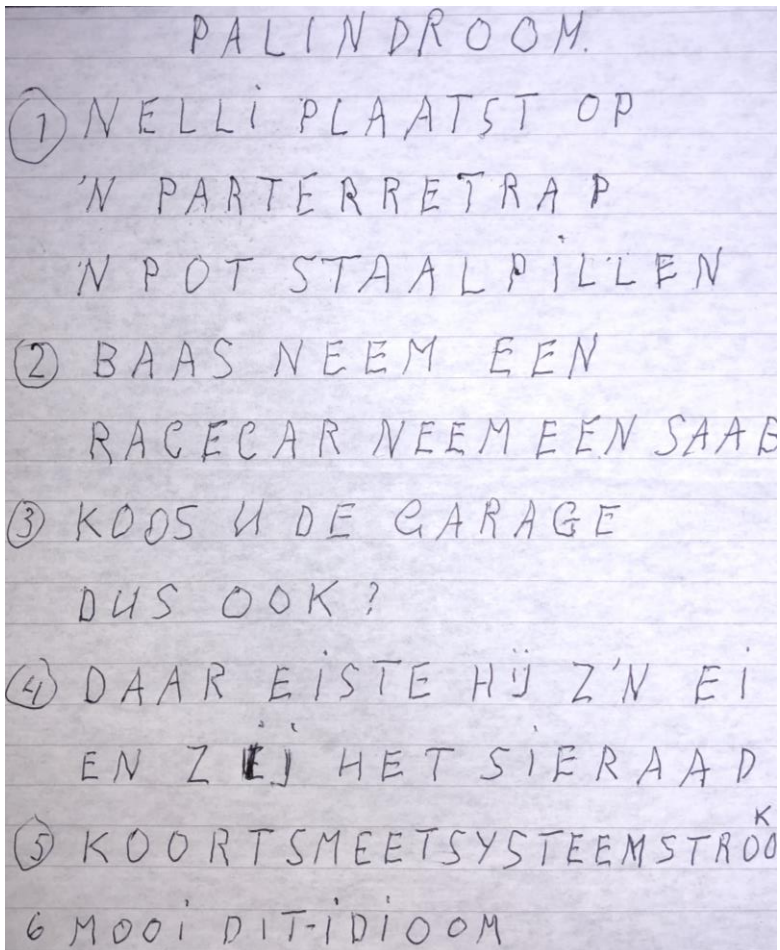 PALINDROOM.
① NELLi PLAATST OP
'N PARTERRETRAP
'N POT STAALPiLLEN
② BAAS NEEM EEN
RACECAR NEEM EEN SAAB
③ KOOS U DE GARAGE
DUS OOK?
④ DAAR EiSTE HIJ Z'N Ei
EN ZIJ HET SiERAAD
⑤ KOORTSMEETSYSTEEMSTROOK
6 MOOi DIT-iDiOOM